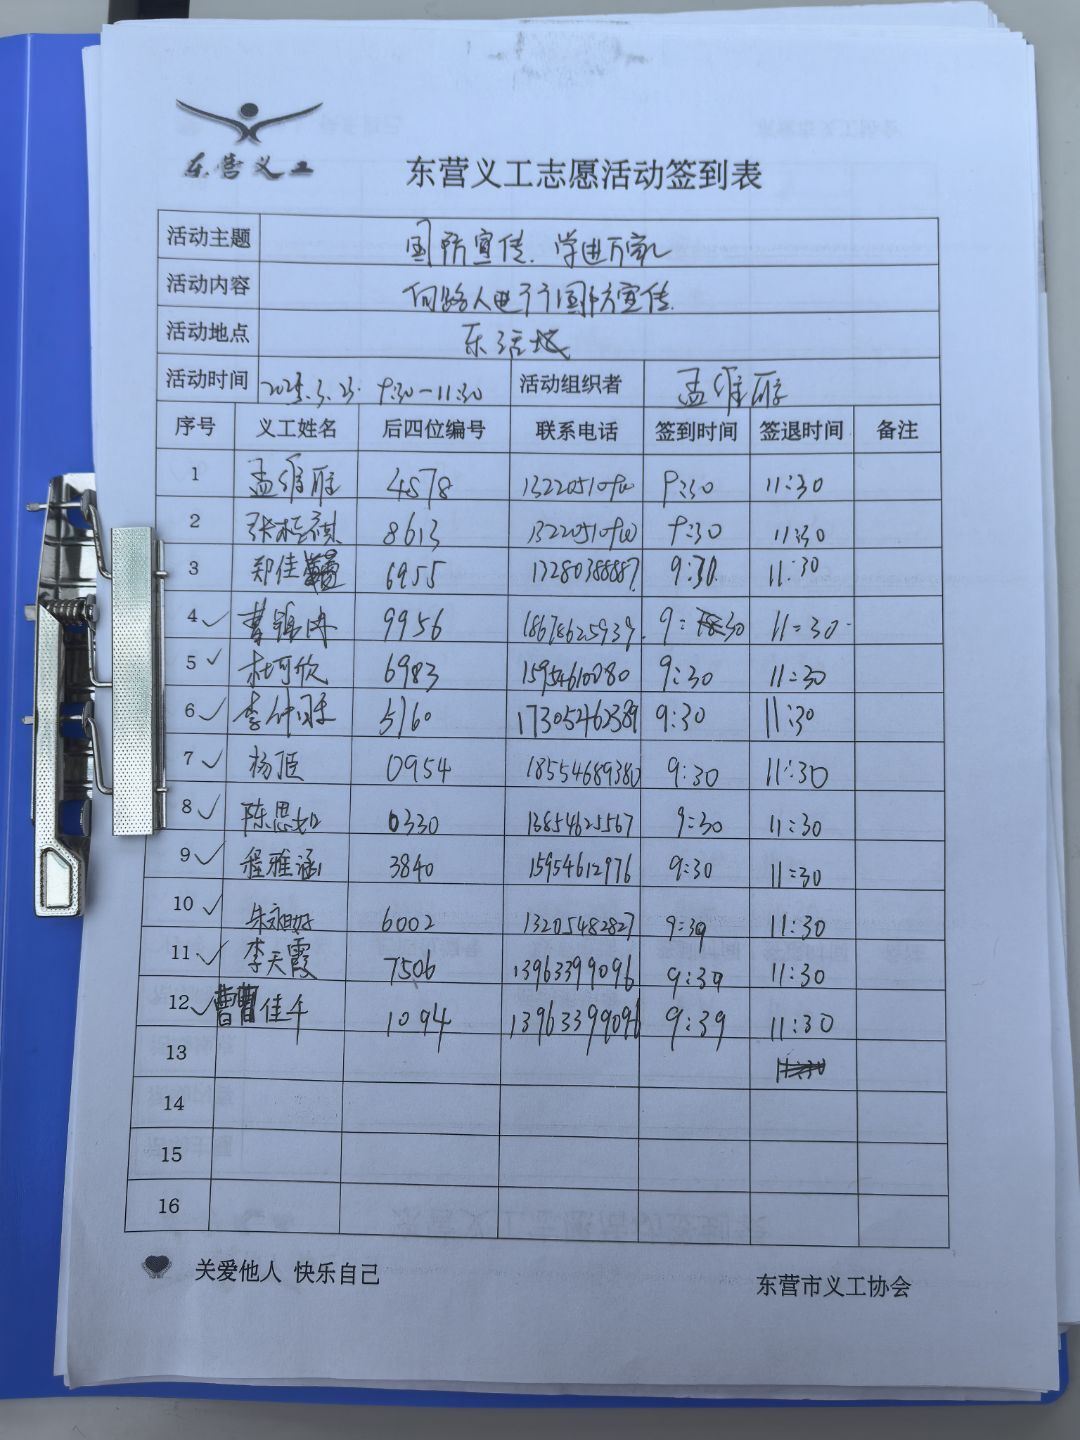 东营义工
东营义工志愿活动签到表
活动主题 国防宣传.学进万家
活动内容 向路人进行国防宣传.
活动地点 东活地
活动时间 2025.3.23. 9:30-11:30 活动组织者 孟维
序号 义工姓名 后四位编号 联系电话 签到时间 签退时间 备注
1 孟维 4578 9:30 11:30
2 8613 9:30 11:30
3 郑佳 6955 9:30. 11:30
4 曹 9956 18678625939. 9:30 11:30
5 杜可欣 6983 15954610080 9:30 11:30
6 李 5760 17305462389 9:30 11:30
7 杨 0954 18554689380 9:30 11:30
8 陈思如 0330 13854625567 9:30 11:30
9 程雅涵 3840 15954612976 9:30 11:30
10 朱 6002 13205482827 9:39 11:30
11 李天霞 7506 13963399096 9:39 11:30
12 曹佳千 1094 13963399096 9:39 11:30
13
14
15
16
关爱他人 快乐自己
东营市义工协会